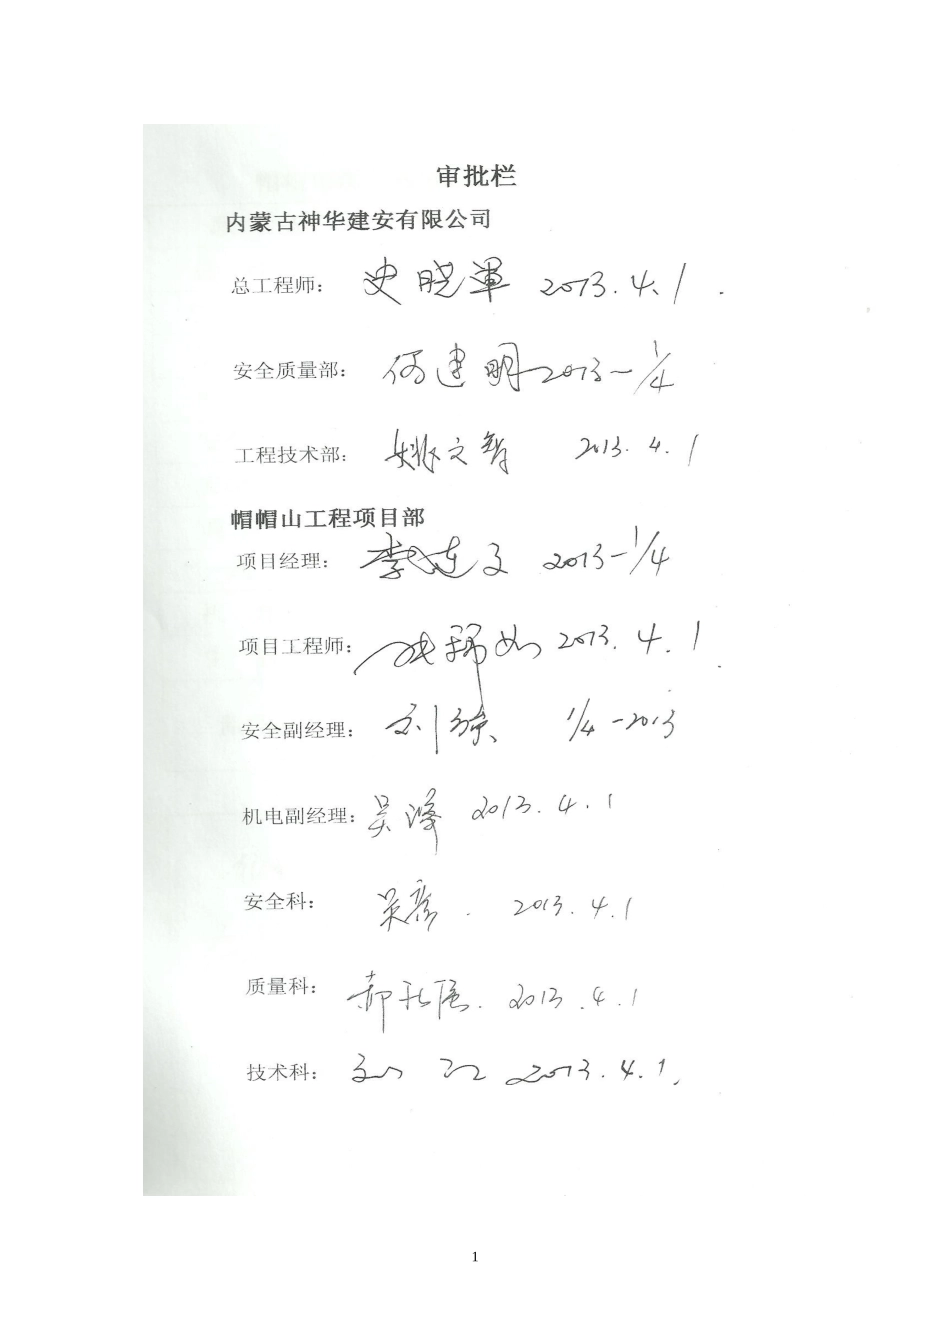 审批栏
内蒙古神华建安有限公司
总工程师： 史晓军 2013.4.1.
安全质量部： 何建明 2013-1/4
工程技术部： 姚文智 2013.4.1
帽帽山工程项目部
项目经理： 李连文 2013-1/4
项目工程师： 2013.4.1
安全副经理： 刘 1/4-2013
机电副经理： 吴峰 2013.4.1
安全科： 吴彦. 2013.4.1
质量科： 郝 2013.4.1
技术科： 2013.4.1,
1